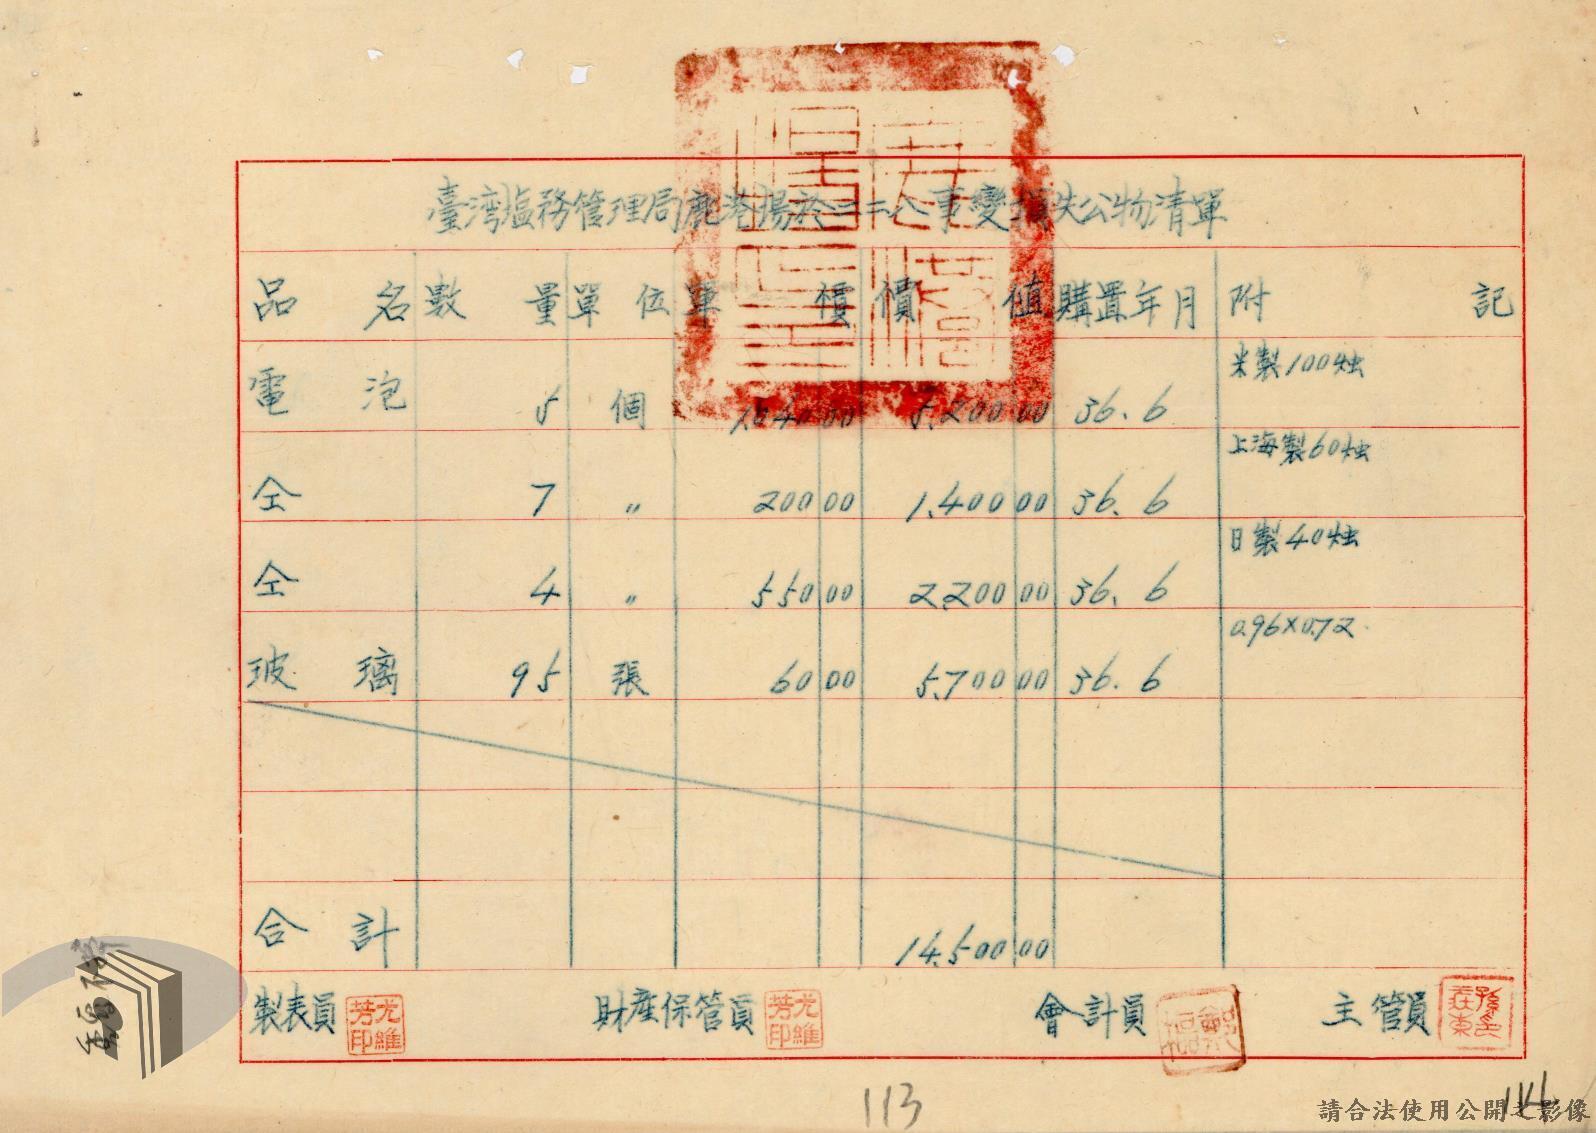 臺湾塩務管理局鹿港場於二二八事變損失公物清單
品名 數量 單位 單價 價值 購置年月 附記
電泡 5 個 1,040 00 5,200 00 36.6 米製100烛
仝 7 〃 200 00 1,400 00 36.6 上海製60烛
仝 4 〃 550 00 2,200 00 36.6 日製40烛
玻璃 95 張 60 00 5,700 00 36.6 0.96×0.72
合計 14,500 00
製表員 尤維芳印 財產保管員 尤維芳印 會計員 主管員
113
114
請合法使用公開之影像